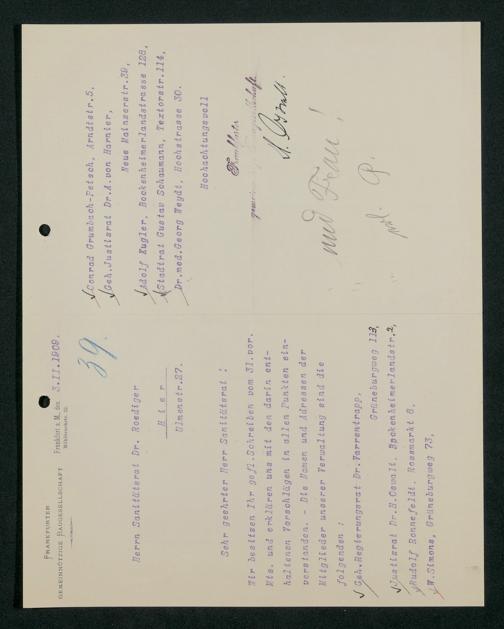 FRANKFURTER
GEMEINNÜTZIGE BAUGESELLSCHAFT
Frankfurt a. M. den 3.11.1909.
39.
Herrn Sanitätsrat Dr. Roediger
Hier
Ulmenstr.27.
Sehr geehrter Herr Sanitätsrat :
Wir besitzen Ihr gefl.Schreiben vom 31.vor.
Mts. und erklären uns mit den darin ent-
haltenen Vorschlägen in allen Punkten ein-
verstanden. - Die Namen und Adressen der
Mitglieder unserer Verwaltung sind die
folgenden :
Geh.Regierungsrat Dr.Varrentrapp,
Grüneburgweg 113,
Justizrat Dr.H.Oswalt, Bockenheimerlandstr.2,
Rudolf Ronnefeldt, Rossmarkt 8,
W.Simons, Grüneburgweg 73,
Conrad Grumbach-Petsch, Arndtstr.5,
Geh.Justizrat Dr.A.von Harnier,
Neue Mainzerstr.39,
Adolf Kugler, Bockenheimerlandstrasse 128,
Stadtrat Gustav Schaumann, Textorstr.114,
Dr.med.Georg Weydt, Hochstrasse 30.
Hochachtungsvoll
Frankfurter
und Frau!